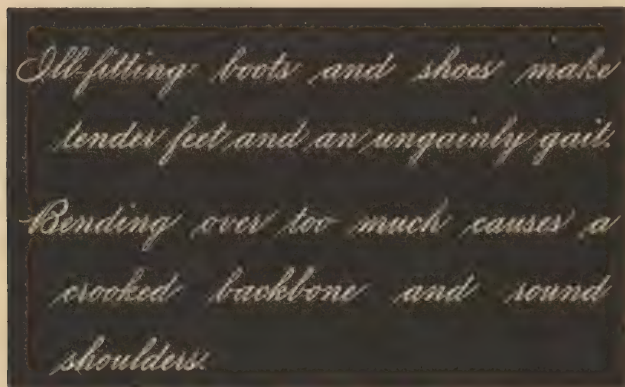 Ill-fitting boots and shoes make
tender feet and an ungainly gait.
Bending over too much causes a
crooked backbone and round
shoulders.